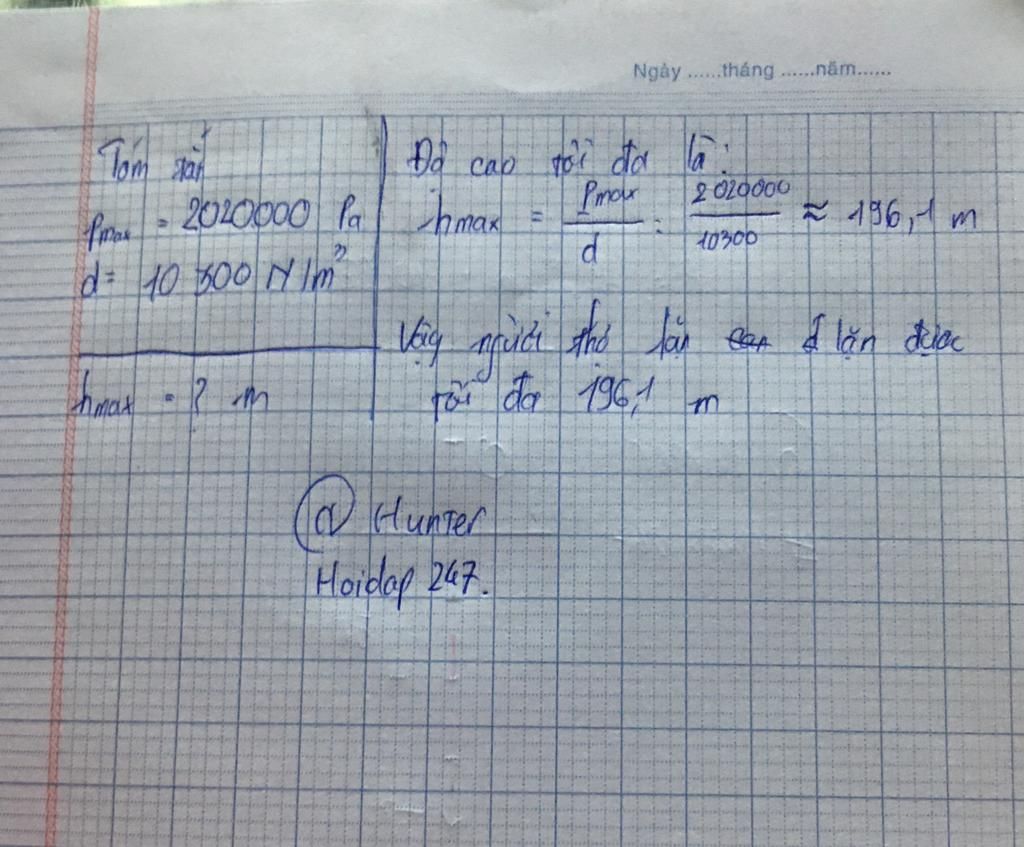 Ngày ......tháng ......năm......
Tóm tắt
Pmax = 2020000 Pa
d = 10 300 N/m³
hmax = ? m
Độ cao tối đa là:
hmax = Pmax / d = 2020000 / 10300 ≈ 196,1 m
Vậy người thợ lặn lặn được
tối đa 196,1 m
@ Hunter
Hoidap 247.